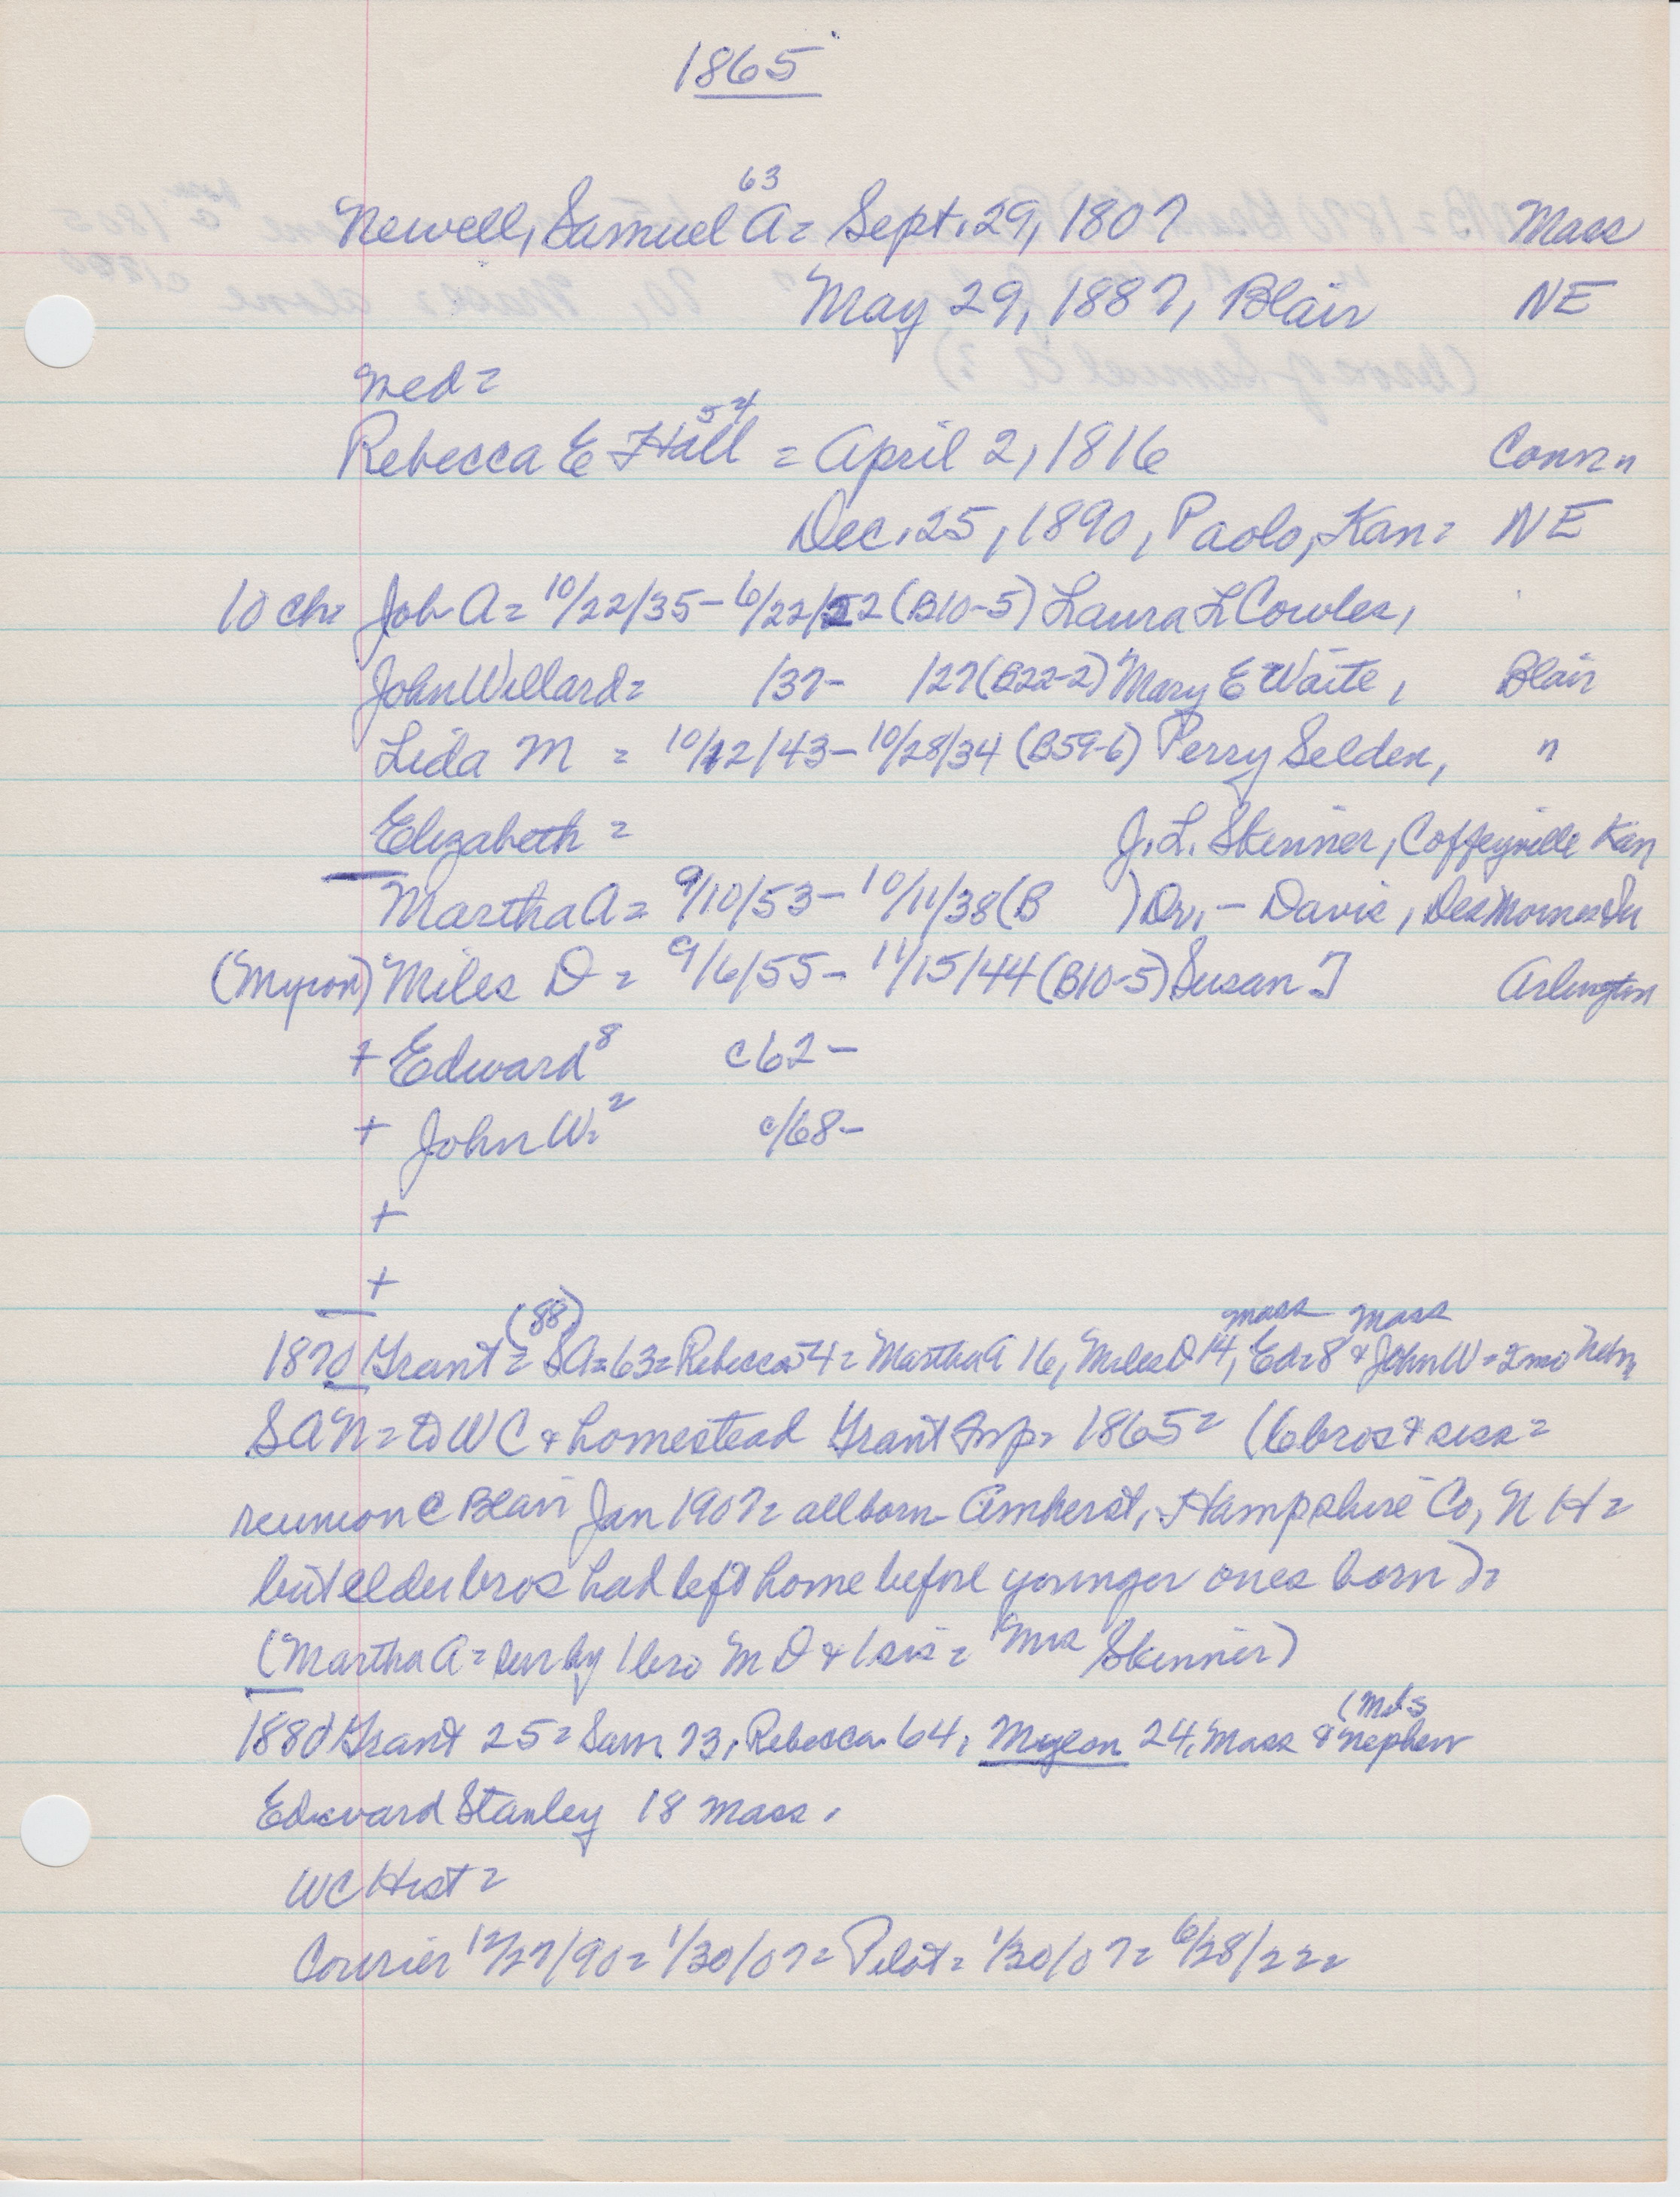 1865
63
Newell, Samuel A = Sept. 29, 1807 Mass
May 29, 1887, Blair NE
med =
54
Rebecca E Hall = April 2, 1816 Conn
Dec. 25, 1890, Paolo, Kan = NE
10 ch = Job A = 10/22/35 - 6/22/22 (B10-5) Laura L Cowles,
John Willard = /37- /27 (B22-2) Mary E Waite, Blair
Lida M = 10/12/43 - 10/28/34 (B59-6) Perry Selden, "
Elizabeth = J. L. Skinner, Coffeyville Kan
Martha A = 9/10/53 - 10/11/38 (B ) Dr. - Davis, Des Moines
(Myron) Miles D = 9/6/55 - 11/15/44 (B10-5) Susan J Arlington
+ Edward 8 c62 -
+ John W = 2 c/68 -
+
+
(88) Mass Mass
1870 Grant = SA = 63 = Rebecca 54 = Martha A 16, Miles D 14, Ed = 8 & John W = 2 mo Nebr
SAN = to WC & homestead Grant Twp = 1865 = (6 bros & siss =
reunion @ Blair Jan 1907 = all born Amherst, Hampshire Co, N H =
but elder bros had left home before younger ones born) =
(Martha A = sur by 1 bro M D & 1 sis = Mrs Skinner)
(Miles
1880 Grant 25 = Sam 73, Rebecca 64, Myron 24, Mass & nephew
Edward Stanley 18 Mass.
WC Hist =
Courier 12/27/90 = 1/30/07 = Pilot = 1/30/07 = 6/28/22 =